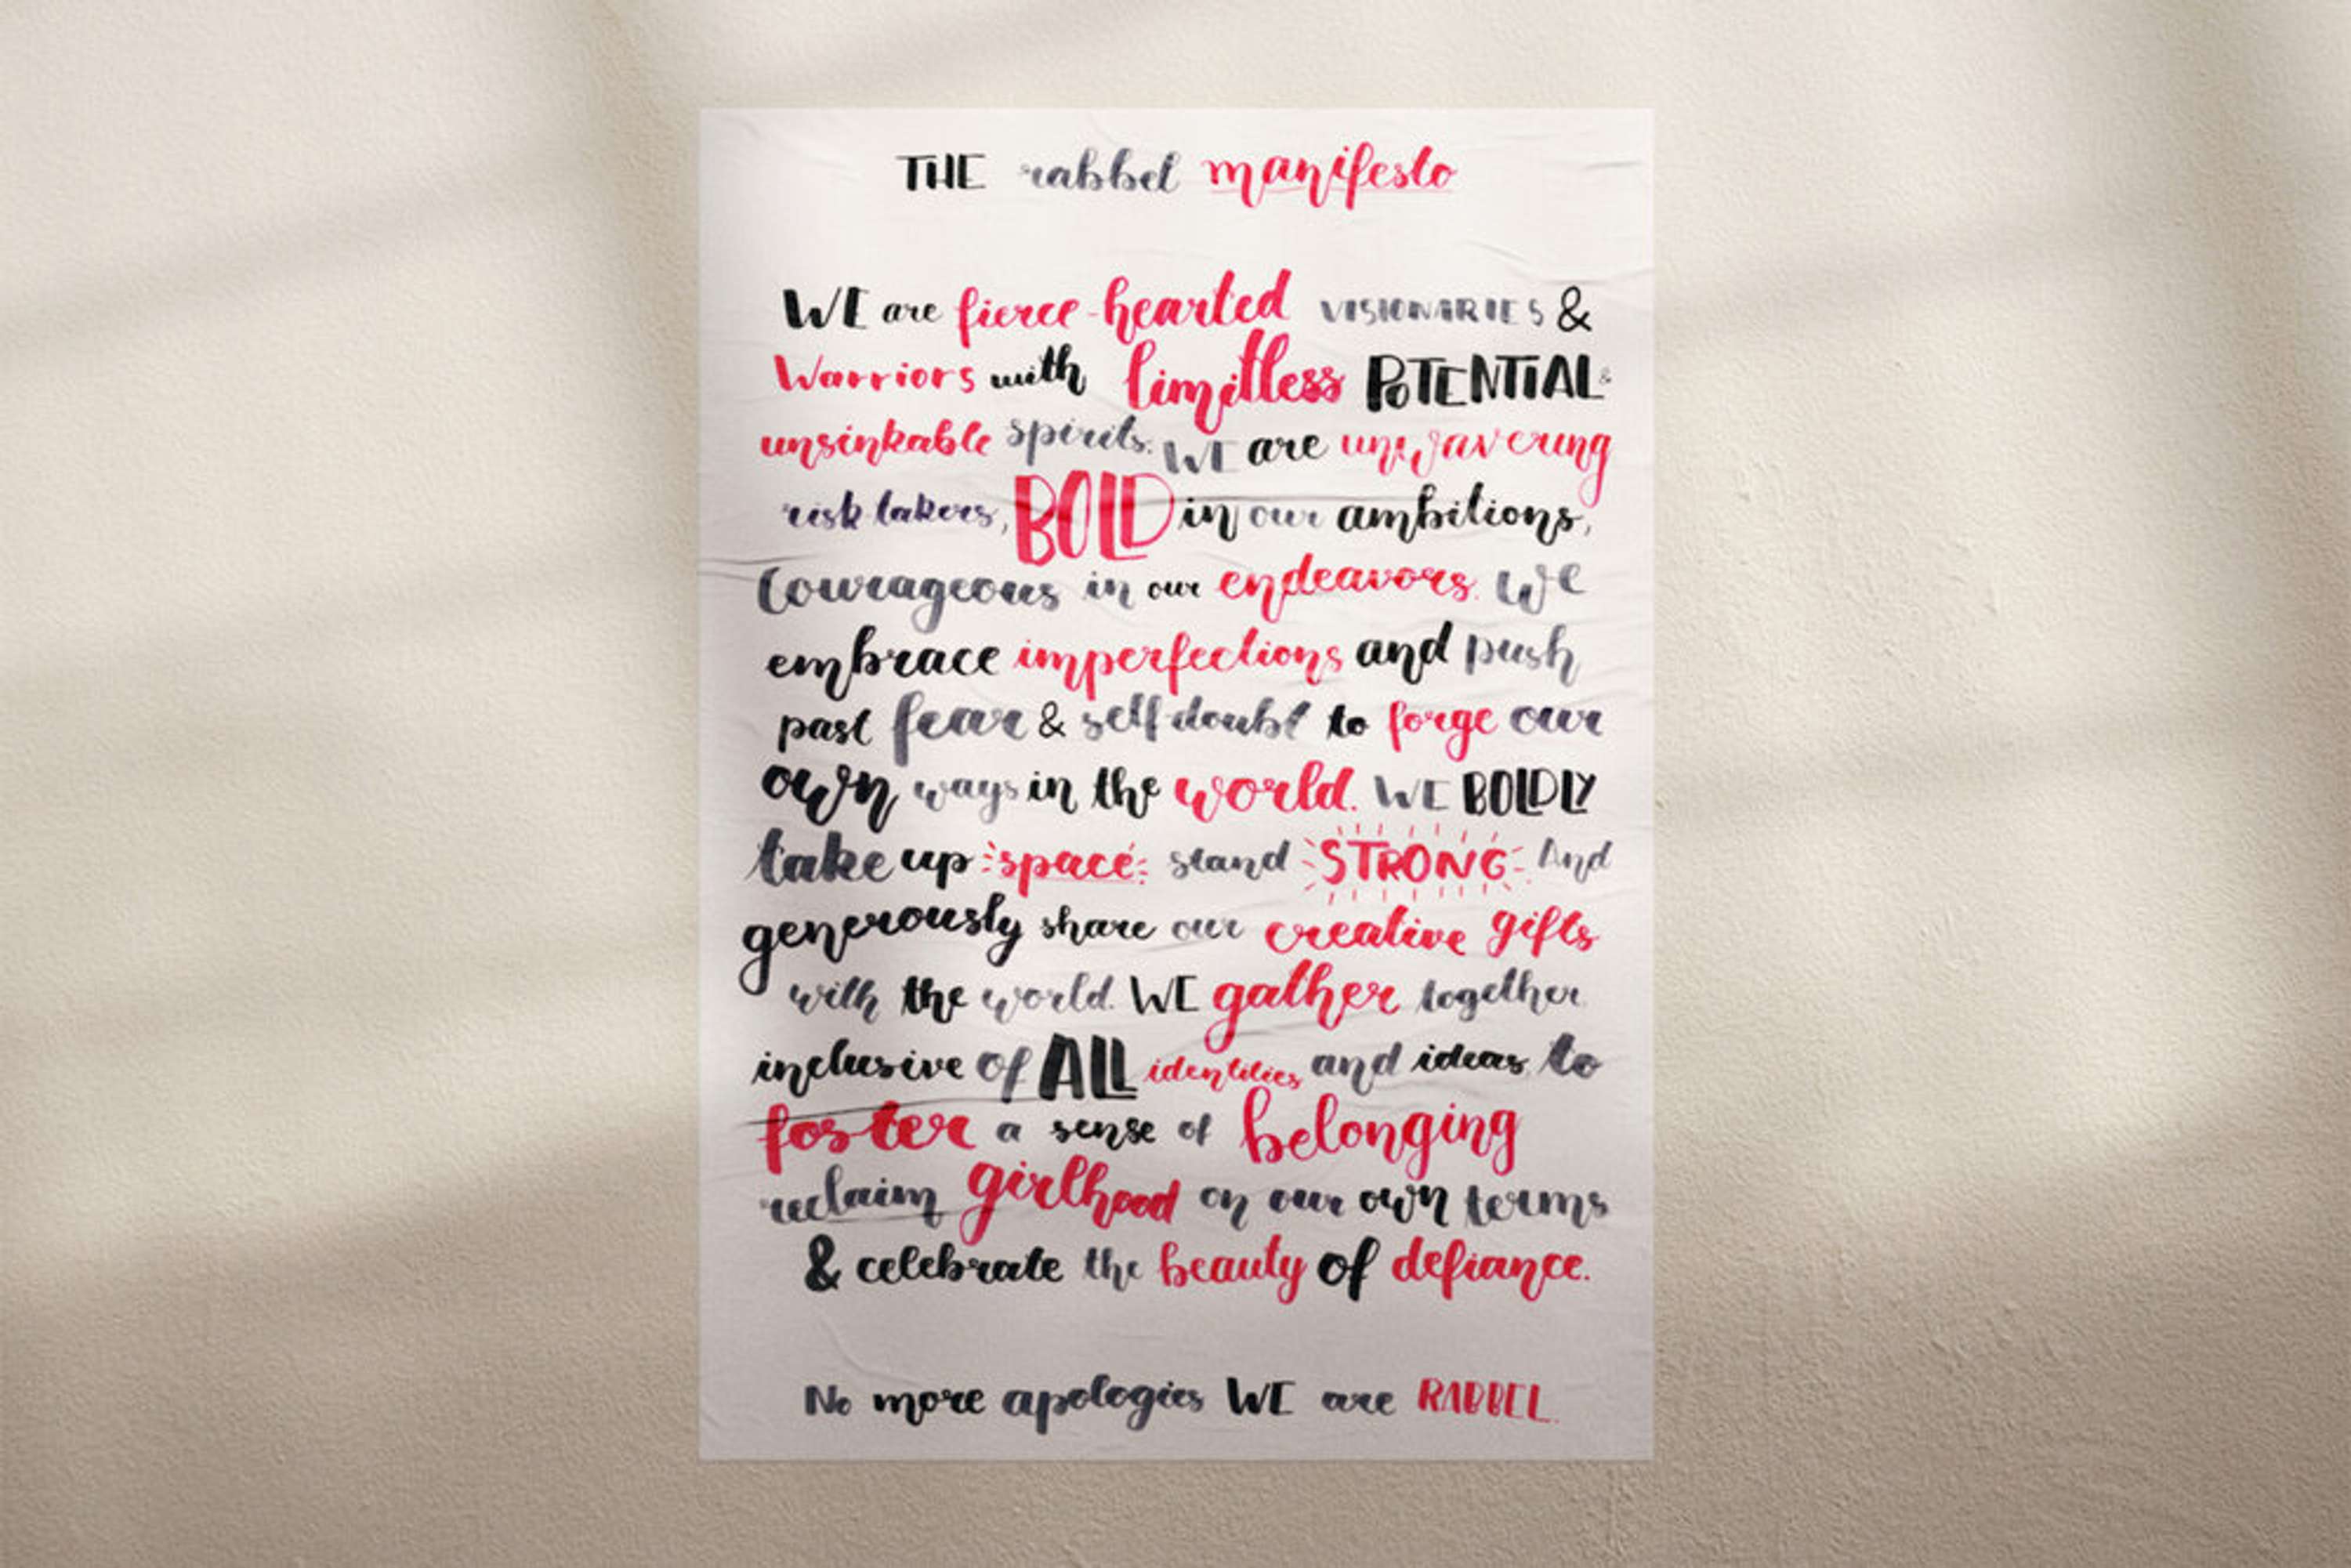 THE rabbel manifesto
WE are fierce-hearted VISIONARIES &
Warriors with limitless POTENTIAL &
unsinkable spirits. WE are unwavering
risk-takers, BOLD in our ambitions,
Courageous in our endeavors. We
embrace imperfections and push
past fear & self-doubt to forge our
own ways in the world. WE BOLDLY
take up space, stand STRONG. And
generously share our creative gifts
with the world. WE gather together
inclusive of ALL identities and ideas to
foster a sense of belonging
reclaim girlhood on our own terms
& celebrate the beauty of defiance.
No more apologies WE are RABBEL.